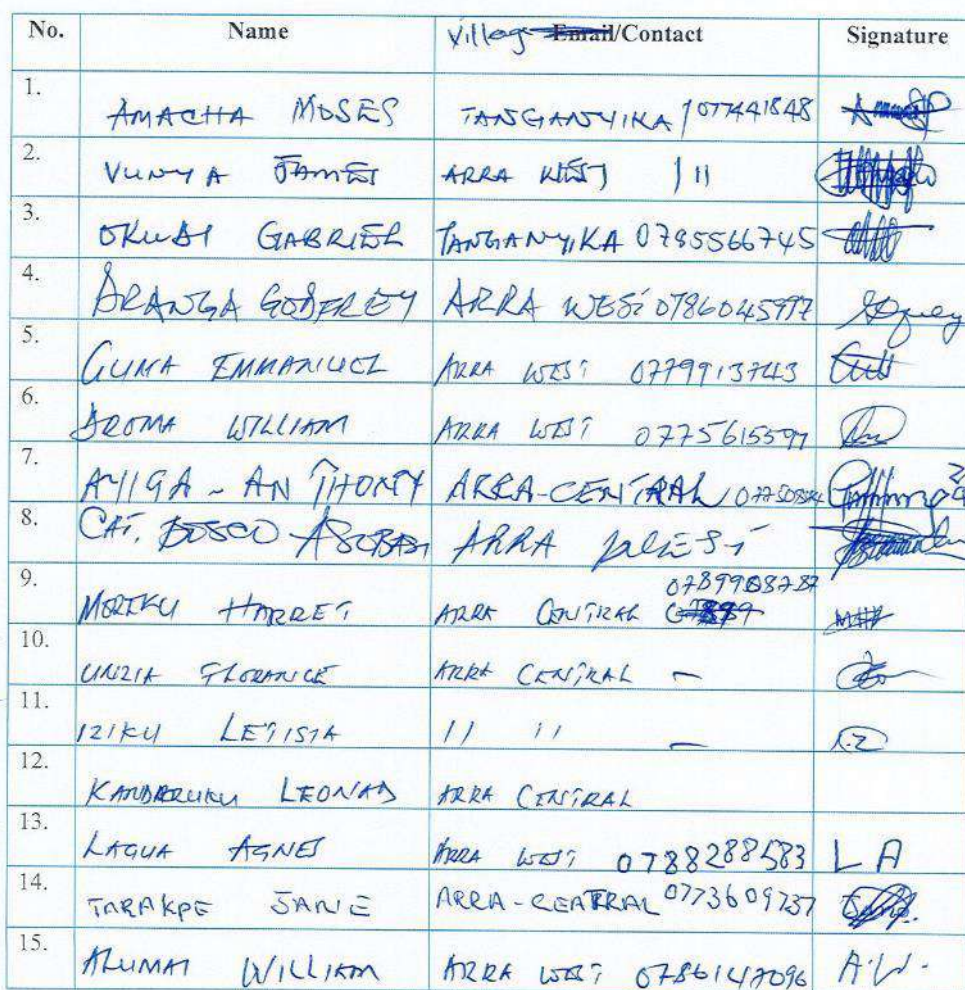 No. Name Villag Email/Contact Signature
1. AMACHA MOSES TANGANYIKA / 077441848
2. VUNYA JAMES ARRA WEST / 11
3. OKUBI GABRIEL TANGANYIKA 0785566745
4. DRANGA GODFREY ARRA WEST 0786045997
5. GUMA EMMANUEL ARRA WEST 0779913743
6. AROMA WILLIAM ARRA WEST 0775615597
7. AYIGA - ANTHONY ARRA-CENTRAL
8. CAT. BOSCO ARRA WEST
9. MORIKU HARRET ARRA CENTRAL 0789908787
10. UNZIA FLORANCE ARRA CENTRAL -
11. IZIKU LETISIA 11 11 -
12. KANDARUKU LEONAD ARRA CENTRAL
13. LAGUA AGNES ARRA WEST 0788288583 L A
14. TARAKPE JANE ARRA-CENTRAL 0773609737
15. ALUMAI WILLIAM ARRA WEST 0786147096 A.W.